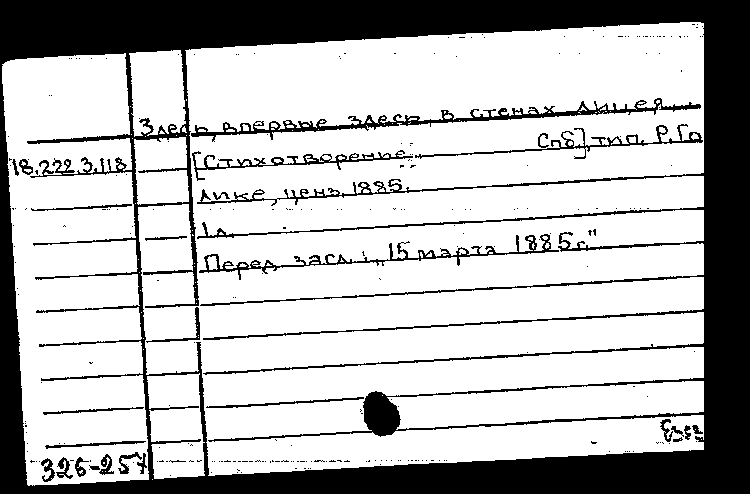 Здесь, впервые здесь, в стенах лицея...
18.222.3.118 [Стихотворение. Спб], тип. Р. Го
лике, ценз. 1885.
1 л.
Перед загл.: „15 марта 1885 г."
326-257